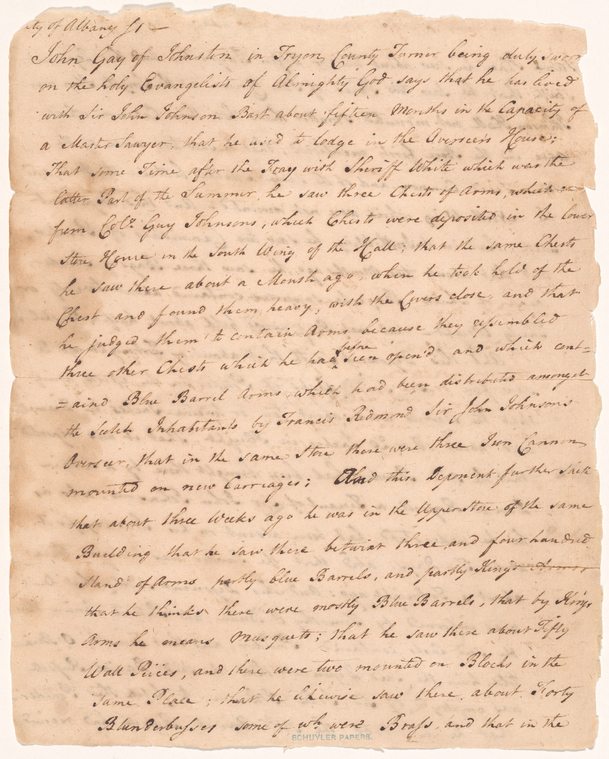 ity of Albany Ss —
John Gay of Johnston in Tryon County Turner being duly swor
on the holy Evangelists of Almighty God says that he has lived
with Sir John Johnson Bart about fifteen Months in the Capacity of
a Master Sawyer, that he used to lodge in the Overseers House;
That some Time after the Fray with Sheriff White which was the
latter Part of the Summer, he saw three Chests of Arms, which
from Colo. Guy Johnsons, which Chests were deposited in the lower
Store House in the South Wing of the Hall; that the same Chests
he saw there about a Month ago, when he took hold of the
Chest and found them heavy, with the Covers close, and that
he judged them to contain Arms because they resembled
three other Chests which he had before seen open'd and which cont=
=aind Blue Barrel Arms, which had been distributed amongst
the Scotch Inhabitants by Francis Redmond Sir John Johnson's
Overseer, that in the same Store there were three Iron Cannon
mounted on new Carriages; And this Deponent further saith
that about three Weeks ago he was in the Upperstore of the same
Building that he saw there betwixt three and four hundred
Stand of Arms partly blue Barrels, and partly Kings Arms,
that he thinks there were mostly Blue Barrels, that by Kings
Arms he means Musquets; that he saw there about Fifty
Wall Pieces, and there were two mounted on Blocks in the
same Place; that he likewise saw there about Forty
Blunderbusses some of wh. were Brass, and that in the
SCHUYLER PAPERS.